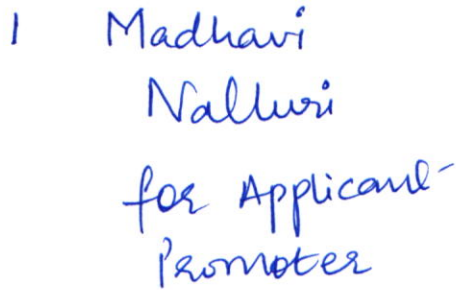 1 Madhavi
Nalluri
for Applicant-
Promoter